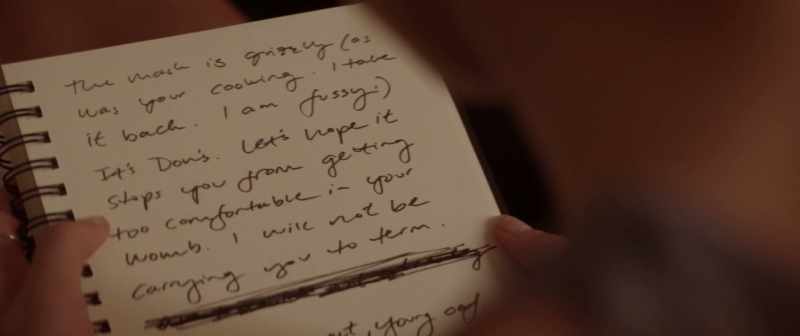 The mask is grizzly (as
was your cooking. I take
it back. I am fussy.)
It's Don's. Let's hope it
stops you from getting
too comfortable in your
womb. I will not be
carrying you to term.
, young